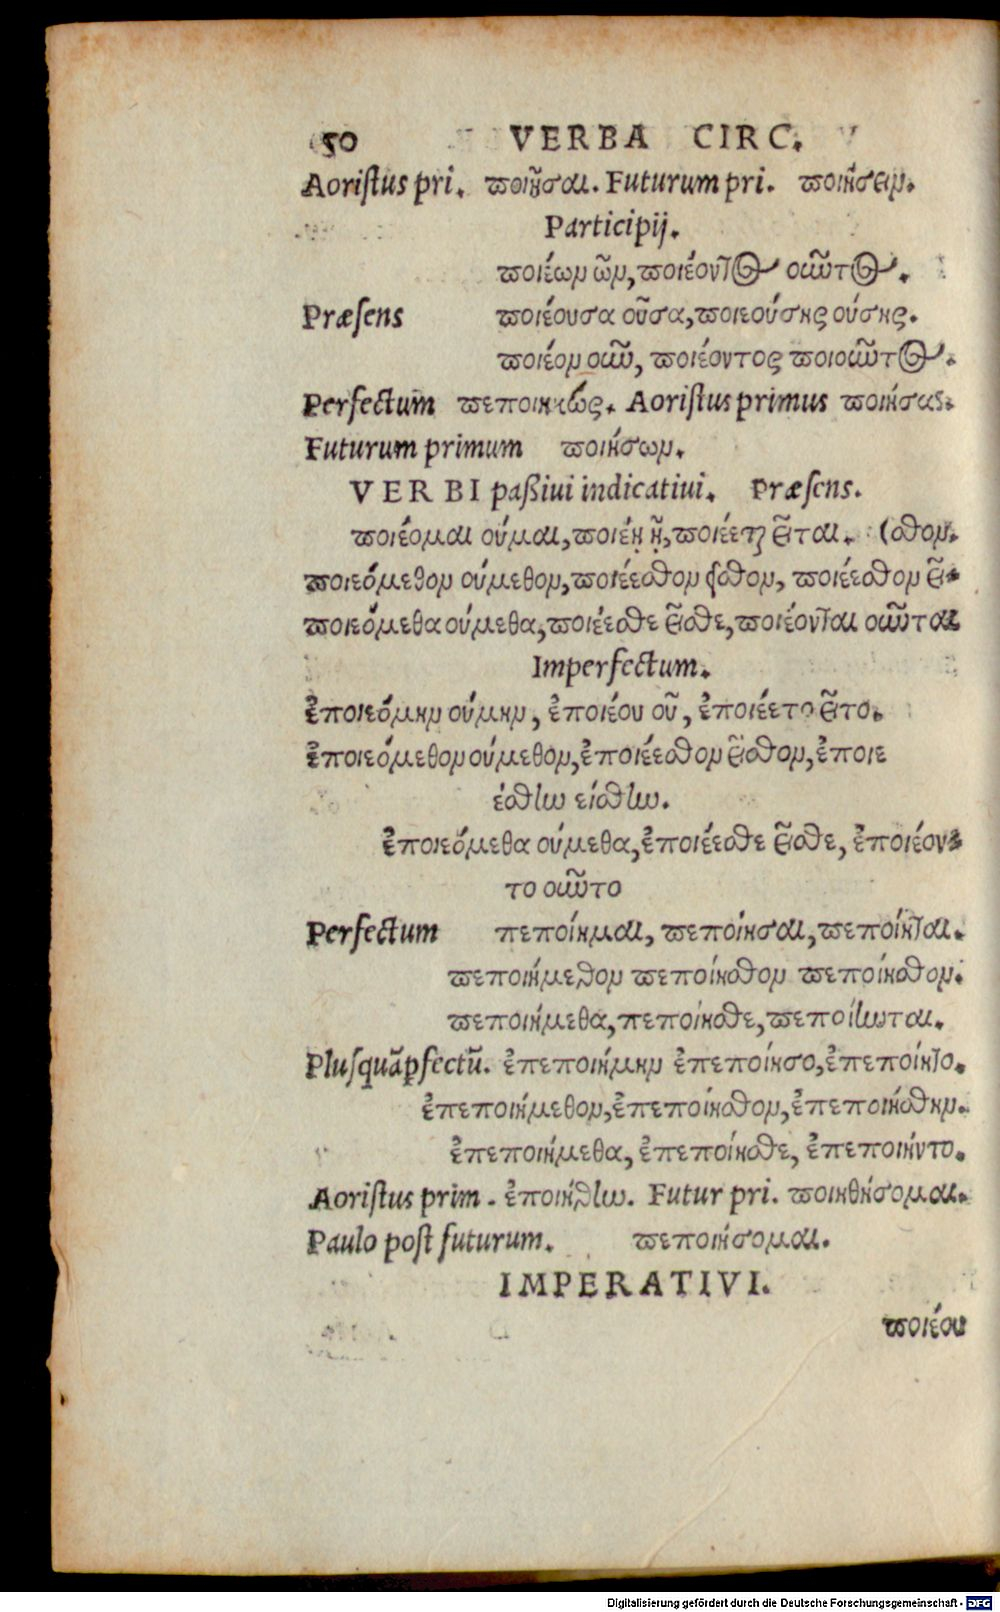 50 VERBA CIRC.
Aoristus pri. ποιῆσαι. Futurum pri. ποιήσειν.
Participij.
ποιέων ῶν, ποιέοντος οιῶτος.
Præsens ποιέουσα οῦσα, ποιεούσης ούσης.
ποιέον οιῶ, ποιέοντος ποιοιῶτος.
Perfectum πεποιηκώς. Aoristus primus ποιήσας.
Futurum primum ποιήσων.
VERBI paßiui indicatiui. Præsens.
ποιέομαι ούμαι, ποιέῃ ῇ, ποιέεται εῖται. (σθον.
ποιεόμεθον ούμεθον, ποιέεσθον εῖσθον, ποιέεσθον εῖ-
ποιεόμεθα ούμεθα, ποιέεσθε εῖσθε, ποιέονται οιῶται
Imperfectum.
ἐποιεόμην ούμην, ἐποιέου οῦ, ἐποιέετο εῖτο.
ἐποιεόμεθον ούμεθον, ἐποιέεσθον εῖσθον, ἐποιε
έσθην είσθην.
ἐποιεόμεθα ούμεθα, ἐποιέεσθε εῖσθε, ἐποιέον-
το οιῶτο
Perfectum πεποίημαι, πεποίησαι, πεποίηται.
πεποιήμεθον πεποίησθον πεποίησθον.
πεποιήμεθα, πεποίησθε, πεποίηνται.
Plusquãpfectũ. ἐπεποιήμην ἐπεποίησο, ἐπεποίητο.
ἐπεποιήμεθον, ἐπεποίησθον, ἐπεποιήσθην.
ἐπεποιήμεθα, ἐπεποίησθε, ἐπεποιήντο.
Aoristus prim. ἐποιήθην. Futur pri. ποιηθήσομαι.
Paulo post futurum. πεποιήσομαι.
IMPERATIVI.
ποιέου
Digitalisierung gefördert durch die Deutsche Forschungsgemeinschaft - DFG